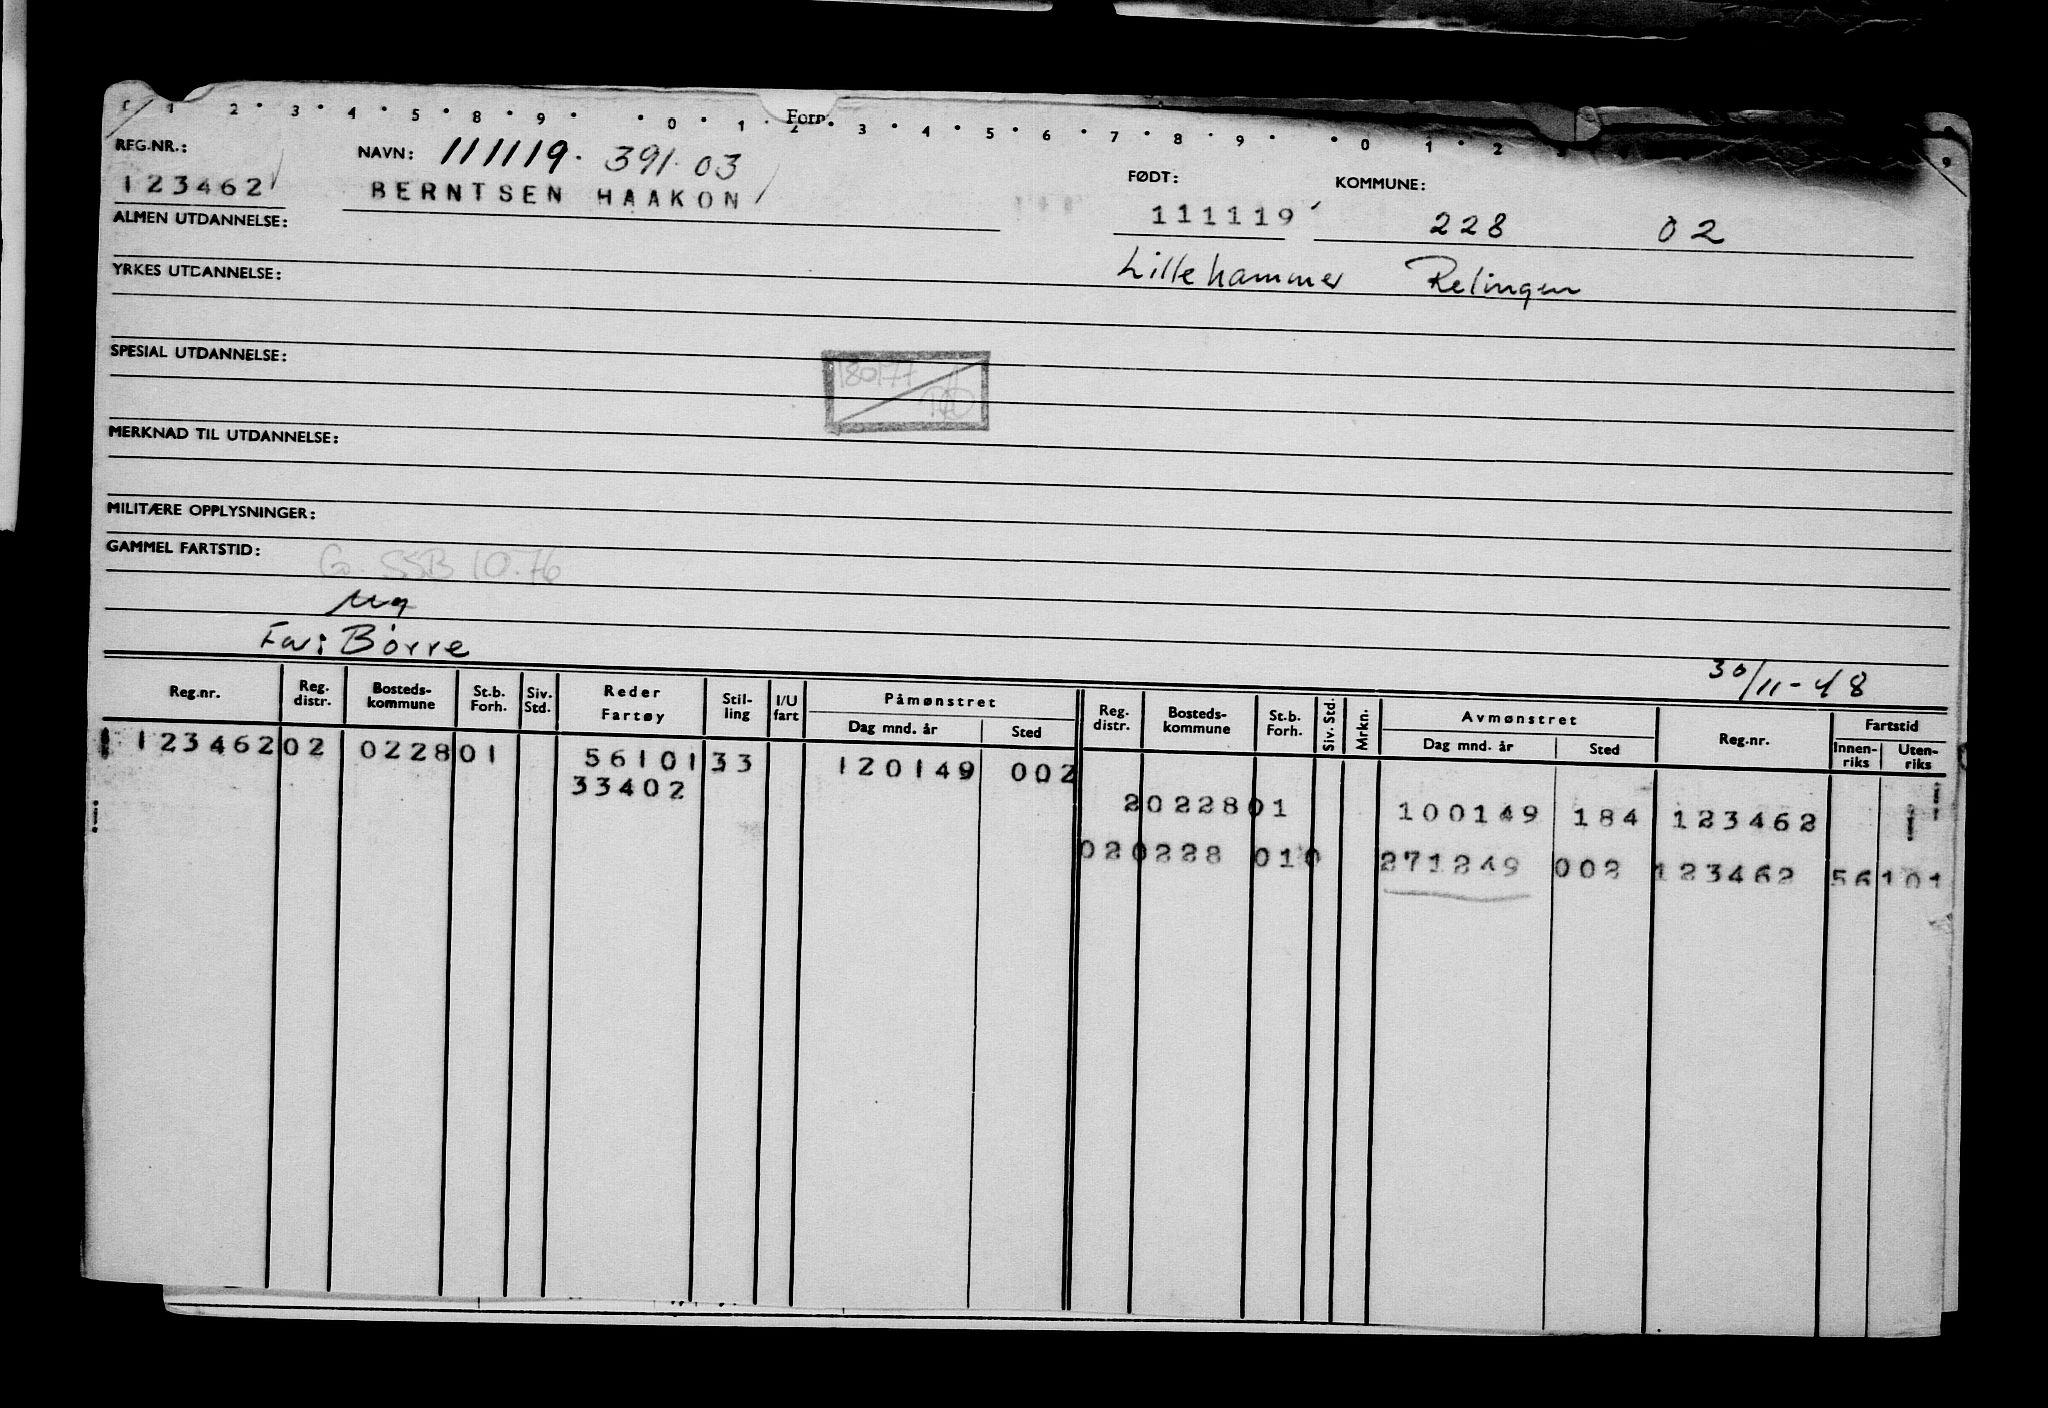 1 2 3 4 5 8 9 0 1 2 3 4 5 6 7 8 9 0 1 2 9
Forn.
REG.NR.: NAVN: 111119. 391.03 FØDT: KOMMUNE:
123462 BERNTSEN HAAKON 111119 228 02
ALMEN UTDANNELSE:
Lillehammer Relingen
YRKES UTDANNELSE:
SPESIAL UTDANNELSE:
180177
MERKNAD TIL UTDANNELSE:
MILITÆRE OPPLYSNINGER:
GAMMEL FARTSTID:
SSB 10.76
Ug
Far: Børre
30/11-48
Reg.nr. Reg. distr. Bosteds-kommune St.b. Forh. Siv. Std. Reder Fartøy Stil-ling I/U fart Påmønstret Dag mnd. år Sted Reg. distr. Bosteds-kommune St.b. Forh. Siv. Std. Mrkn. Avmønstret Dag mnd. år Sted Reg.nr. Fartstid Innen-riks Uten-riks
123462 02 0228 01 56101 33 120149 002
33402
2 0228 01 100149 184 123462
02 0228 010 271249 002 123462 56101